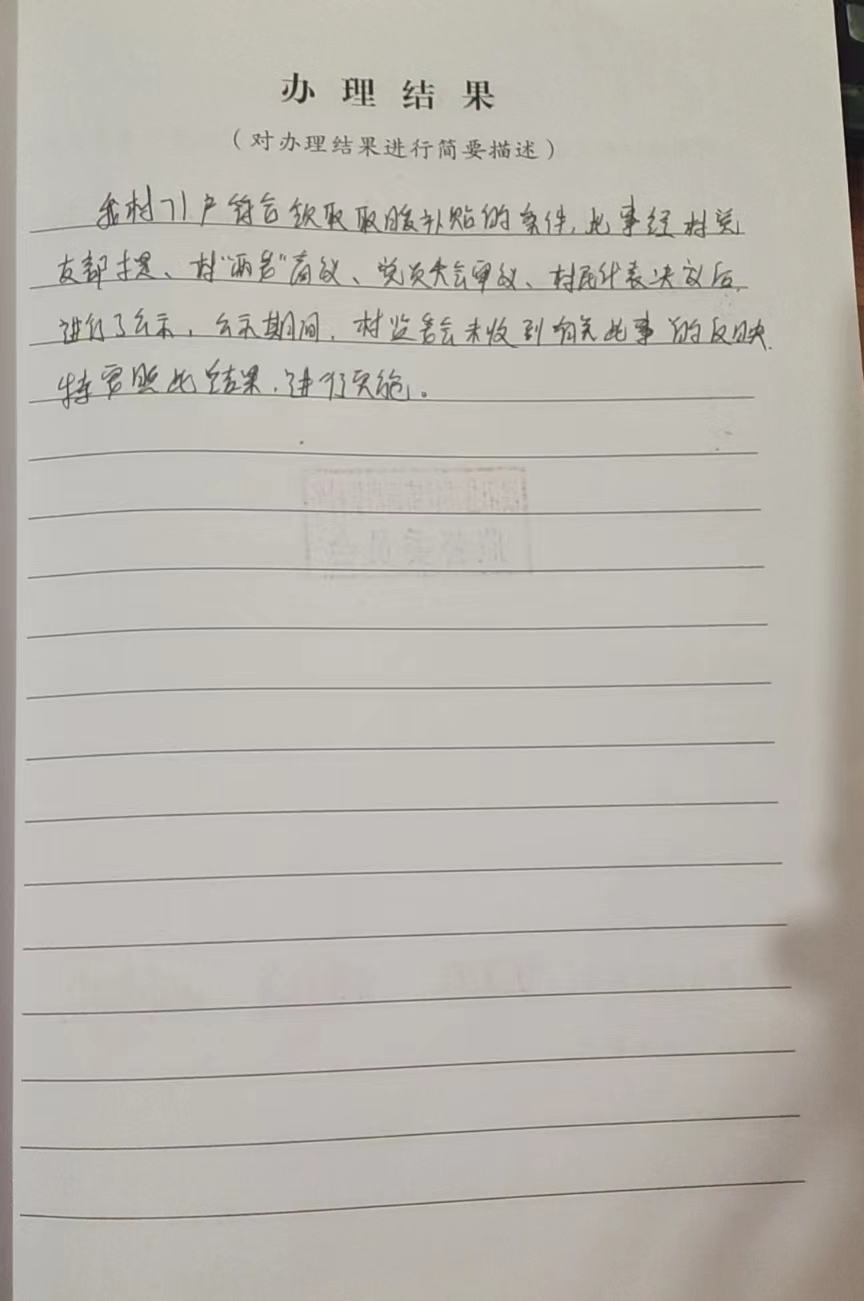 办理结果
（对办理结果进行简要描述）
我村71户符合领取取暖补贴的条件，此事经村党
支部提、村“两委”商议、党员大会审议、村民代表决议后，
进行了公示，公示期间，村监委会未收到有关此事的反映，
按照此结果，进行实施。
监督委员会